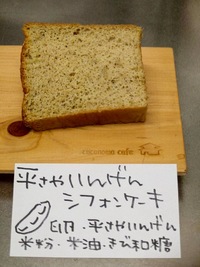 cocotton cafe
平さやいんげん
シフォンケーキ
卵・平さやいんげん
米粉・米油・きび和糖